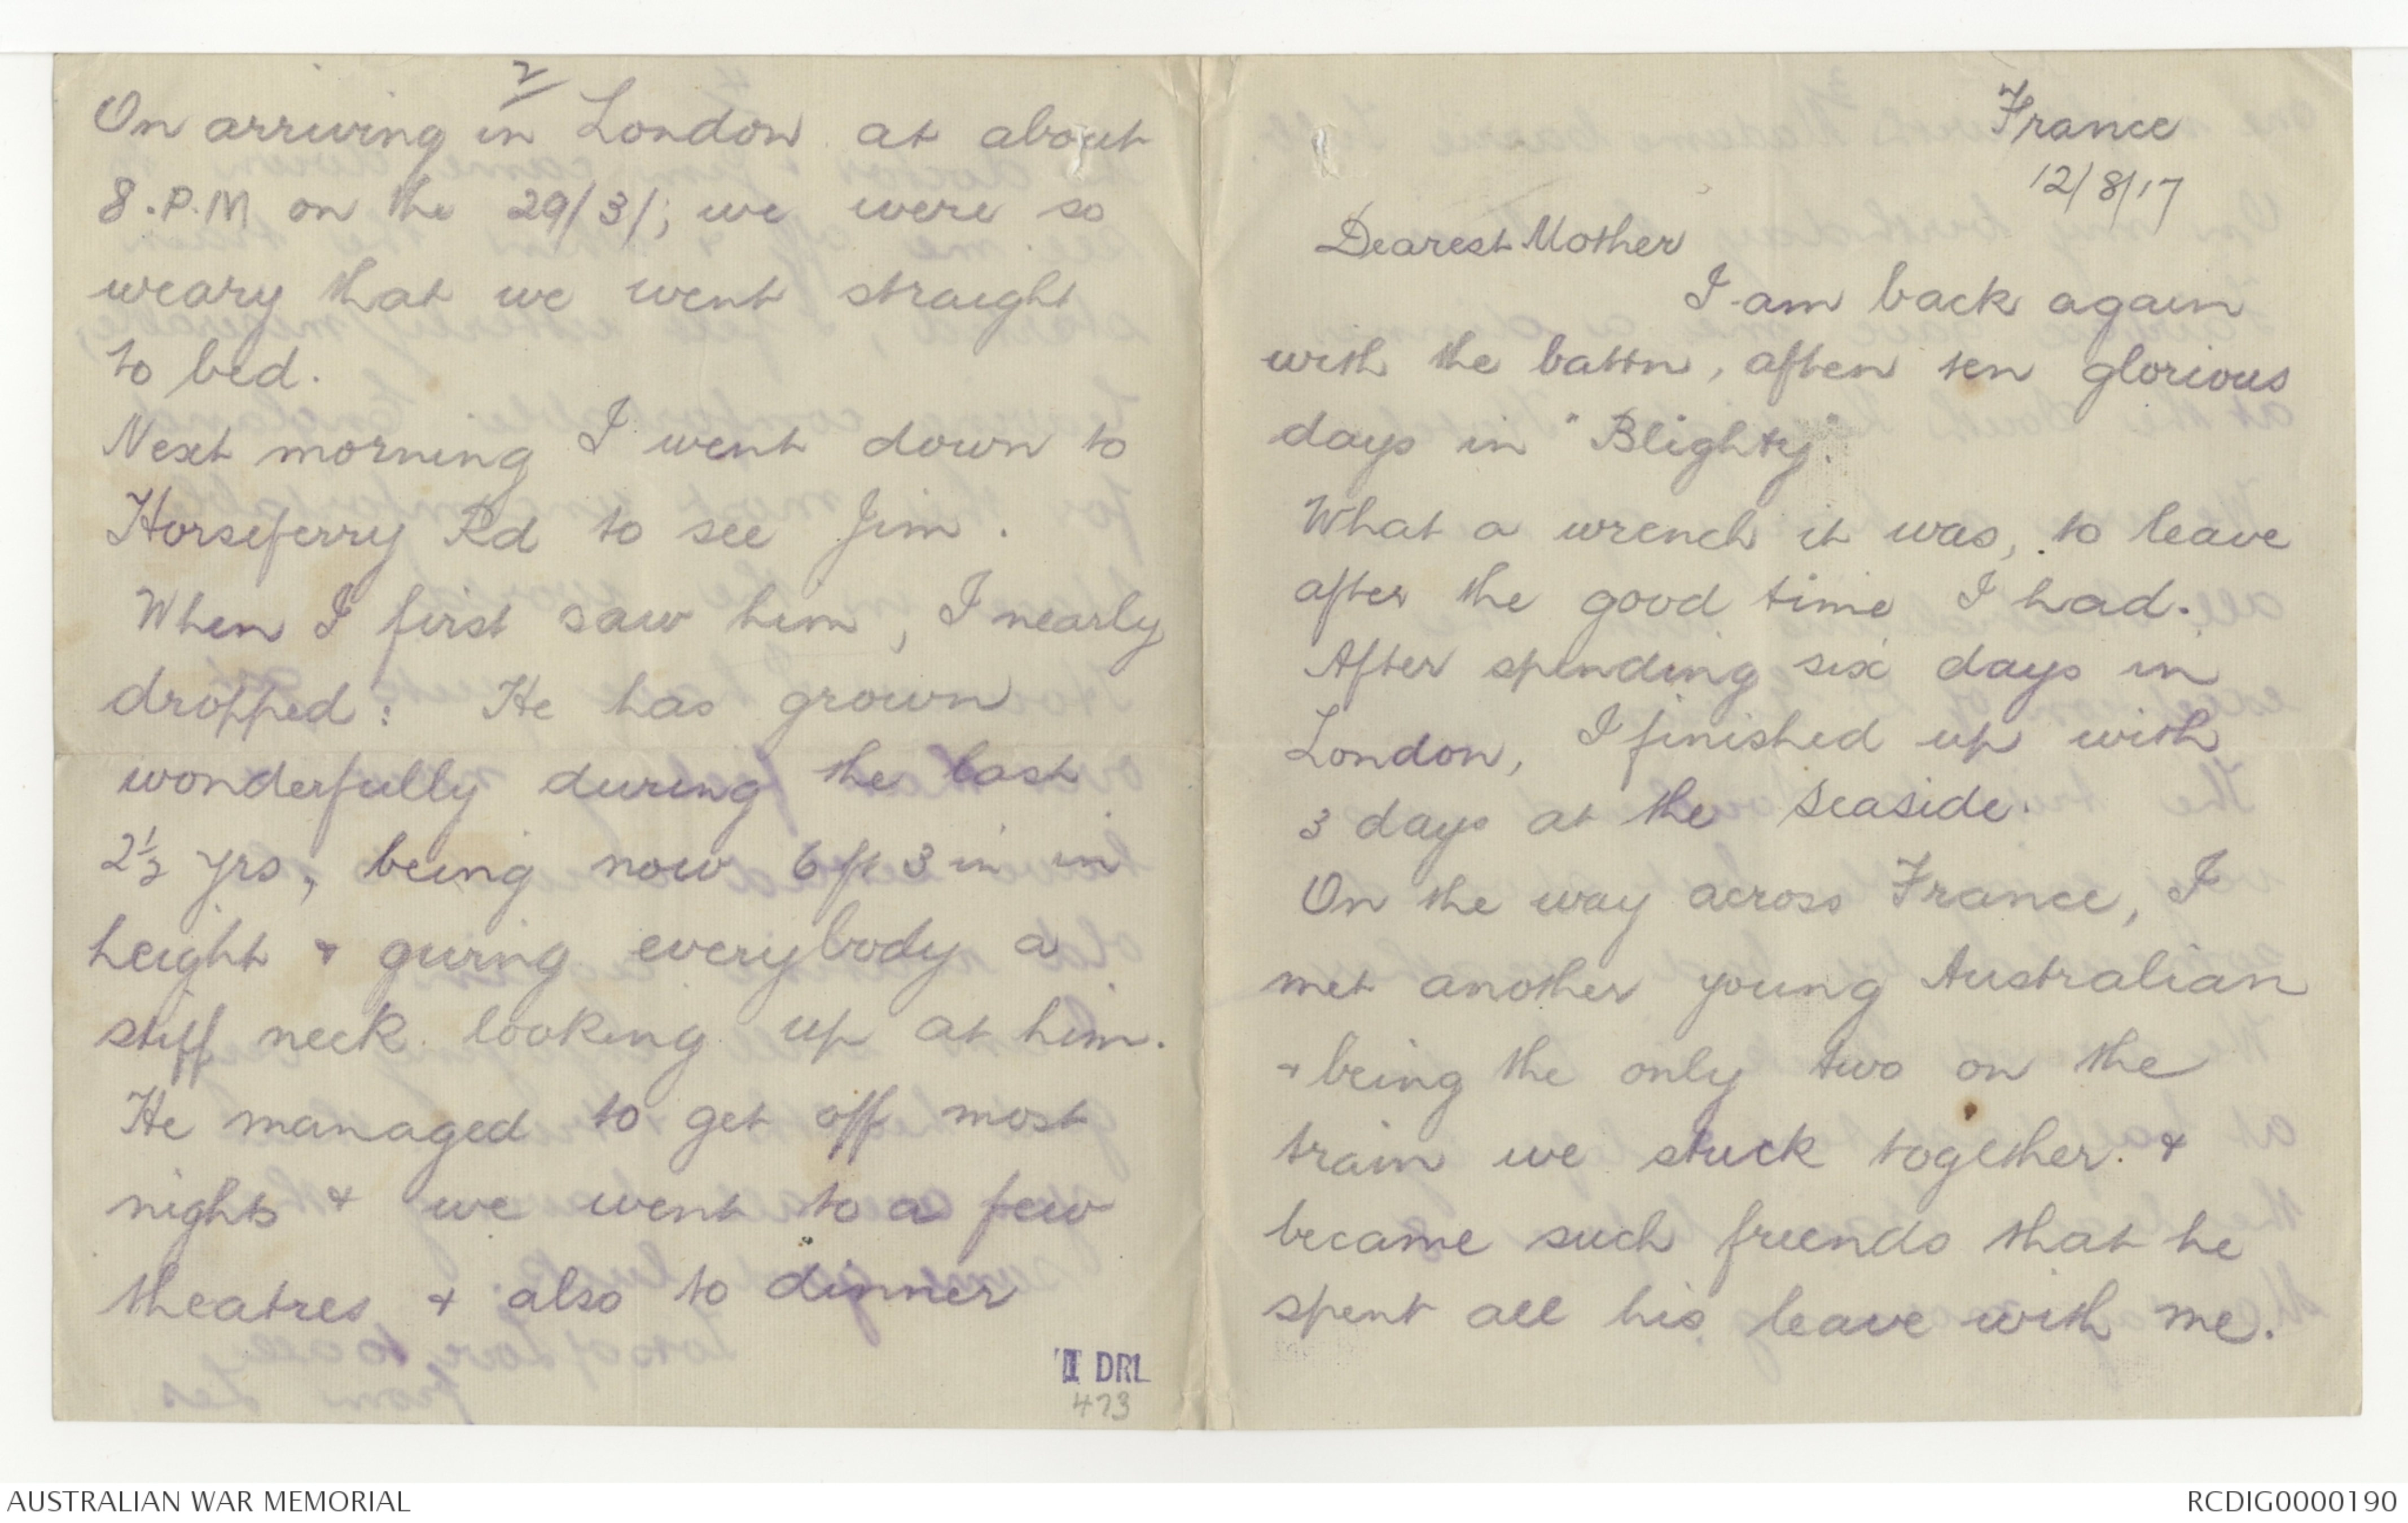 France
12/8/17
Dearest Mother
I am back again
with the battn, after ten glorious
days in "Blighty".
What a wrench it was, to leave
after the good time I had.
After spending six days in
London, I finished up with
3 days at the seaside.
On the way across France, I
met another young Australian
& being the only two on the
train we stuck together. &
became such friends that he
spent all his leave with me.
2
On arriving in London at about
8.P.M on the 29/3/; we were so
weary that we went straight
to bed.
Next morning I went down to
Horseferry Rd to see Jim.
When I first saw him, I nearly
dropped: He has grown
wonderfully during the last
2½ yrs, being now 6 ft 3 in in
height & giving everybody a
stiff neck looking up at him.
He managed to get off most
nights & we went to a few
theatres & also to dinner
II DRL
473
AUSTRALIAN WAR MEMORIAL
RCDIG0000190